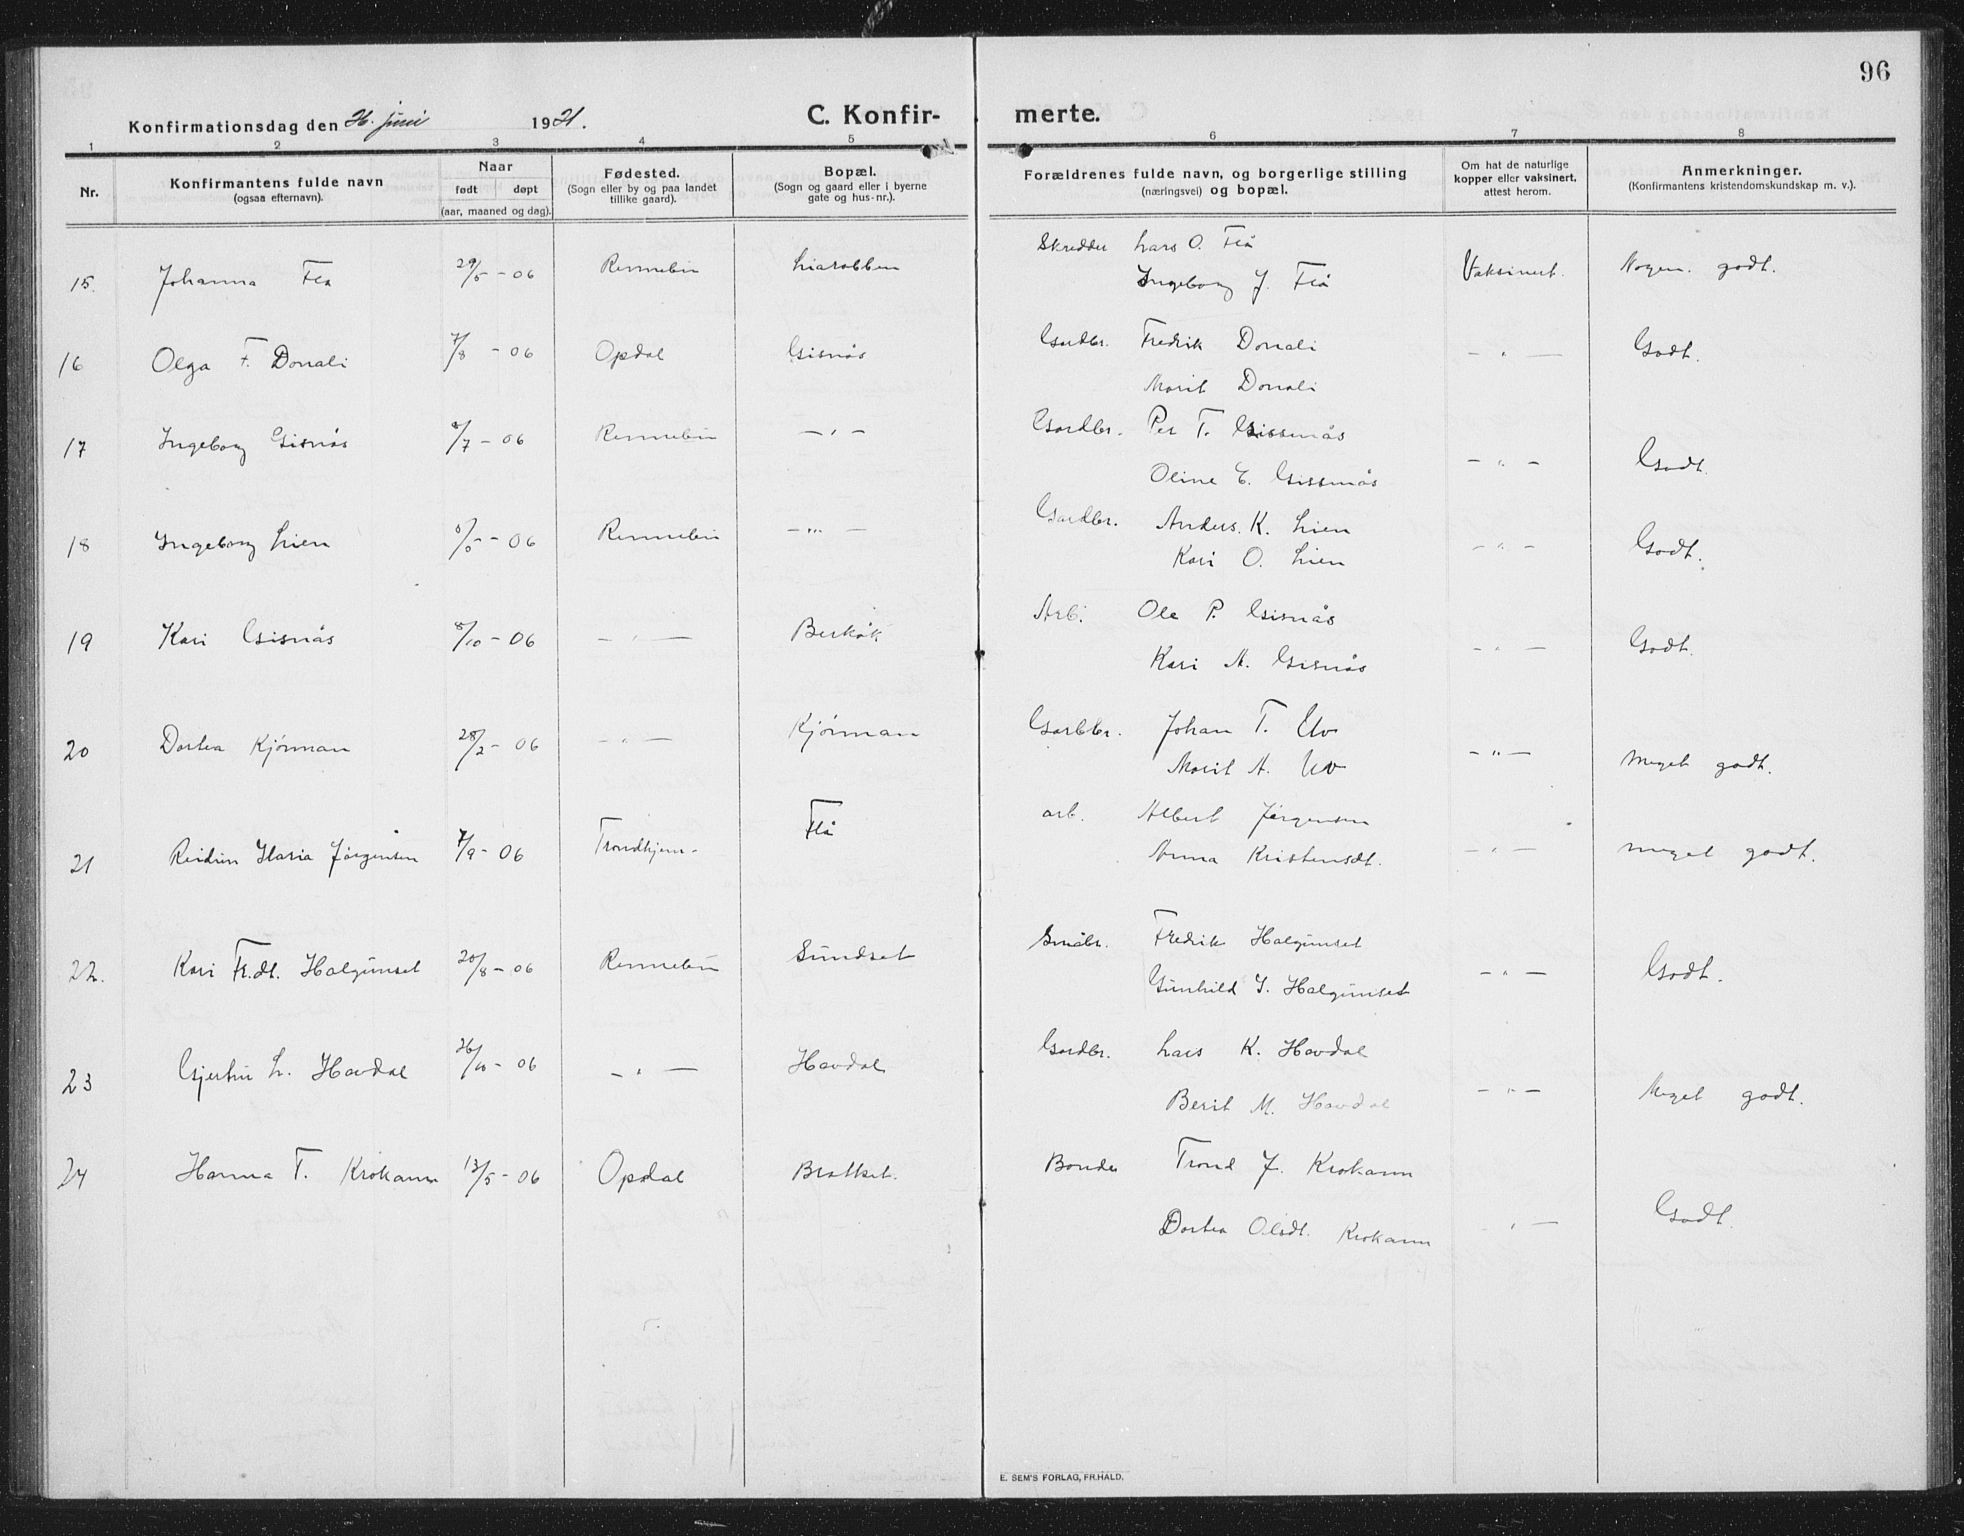 96
Konfirmationsdag den 26. juni 1921.
C. Konfirmerte.
1 2 3 4 5 6 7 8
Nr.
Konfirmantens fulde navn
(ogsaa efternavn).
Naar
født døpt
(aar, maaned og dag).
Fødested.
(Sogn eller by og paa landet
tillike gaard).
Bopæl.
(Sogn og gaard eller i byerne
gate og hus-nr.).
Forældrenes fulde navn, og borgerlige stilling
(næringsvei) og bopæl.
Om hat de naturlige
kopper eller vaksinert,
attest herom.
Anmerkninger.
(Konfirmantens kristendomskundskap m. v.).
15. Johanna Flå 29/5 - 06 Rennebu Liarabben Skredder Lars O. Flå Vaksinert. Nogen. godt.
Ingeborg J. Flå
16 Olga F. Donali 7/8 - 06 Opdal Gisnås Gardbr. Fredrik Donali - " - Godt.
Marit Donali
17 Ingeborg Gisnås 8/7 - 06 Rennebu - " - Gardbr. Per T. Gissnås - " - Godt.
Oline E. Gissnås
18 Ingeborg Lien - 06 Rennebu - " - Gardbr. Anders. K. Lien - " - Godt.
Kari O. Lien
19 Kari Gisnås 8/10 - 06 - " - Berkåk Arb. Ole P. Gisnås - " - Godt.
Kari A. Gisnås
20 Dortea Kjörman 28/2 - 06 - " - Kjörman Gardbr. Johan T. Uv - " - Meget godt.
Marit A. Uv
21 Reidun Maria Jörgensen 7/9 - 06 Trondhjem - Flå arb. Albert Jörgensen - " - meget godt.
Anna Kristensdt.
22. Kari Fr.dt. Halgunset 20/8 - 06 Rennebu Sundset Småbr. Fredrik Halgunset - " - Godt.
Gunhild I. Halgunset
23 Gjertru L. Havdal 26/10 - 06 - " - Havdal Gardbr. Lars K. Havdal - " - Meget godt.
Berit M. Havdal
24 Hanna T. Krokann 13/5 - 06 Opdal Brattset. Bonde Trond J. Krokann
Dortea Olsdt. Krokann " - Godt.
E. SEM'S FORLAG, FR.HALD.